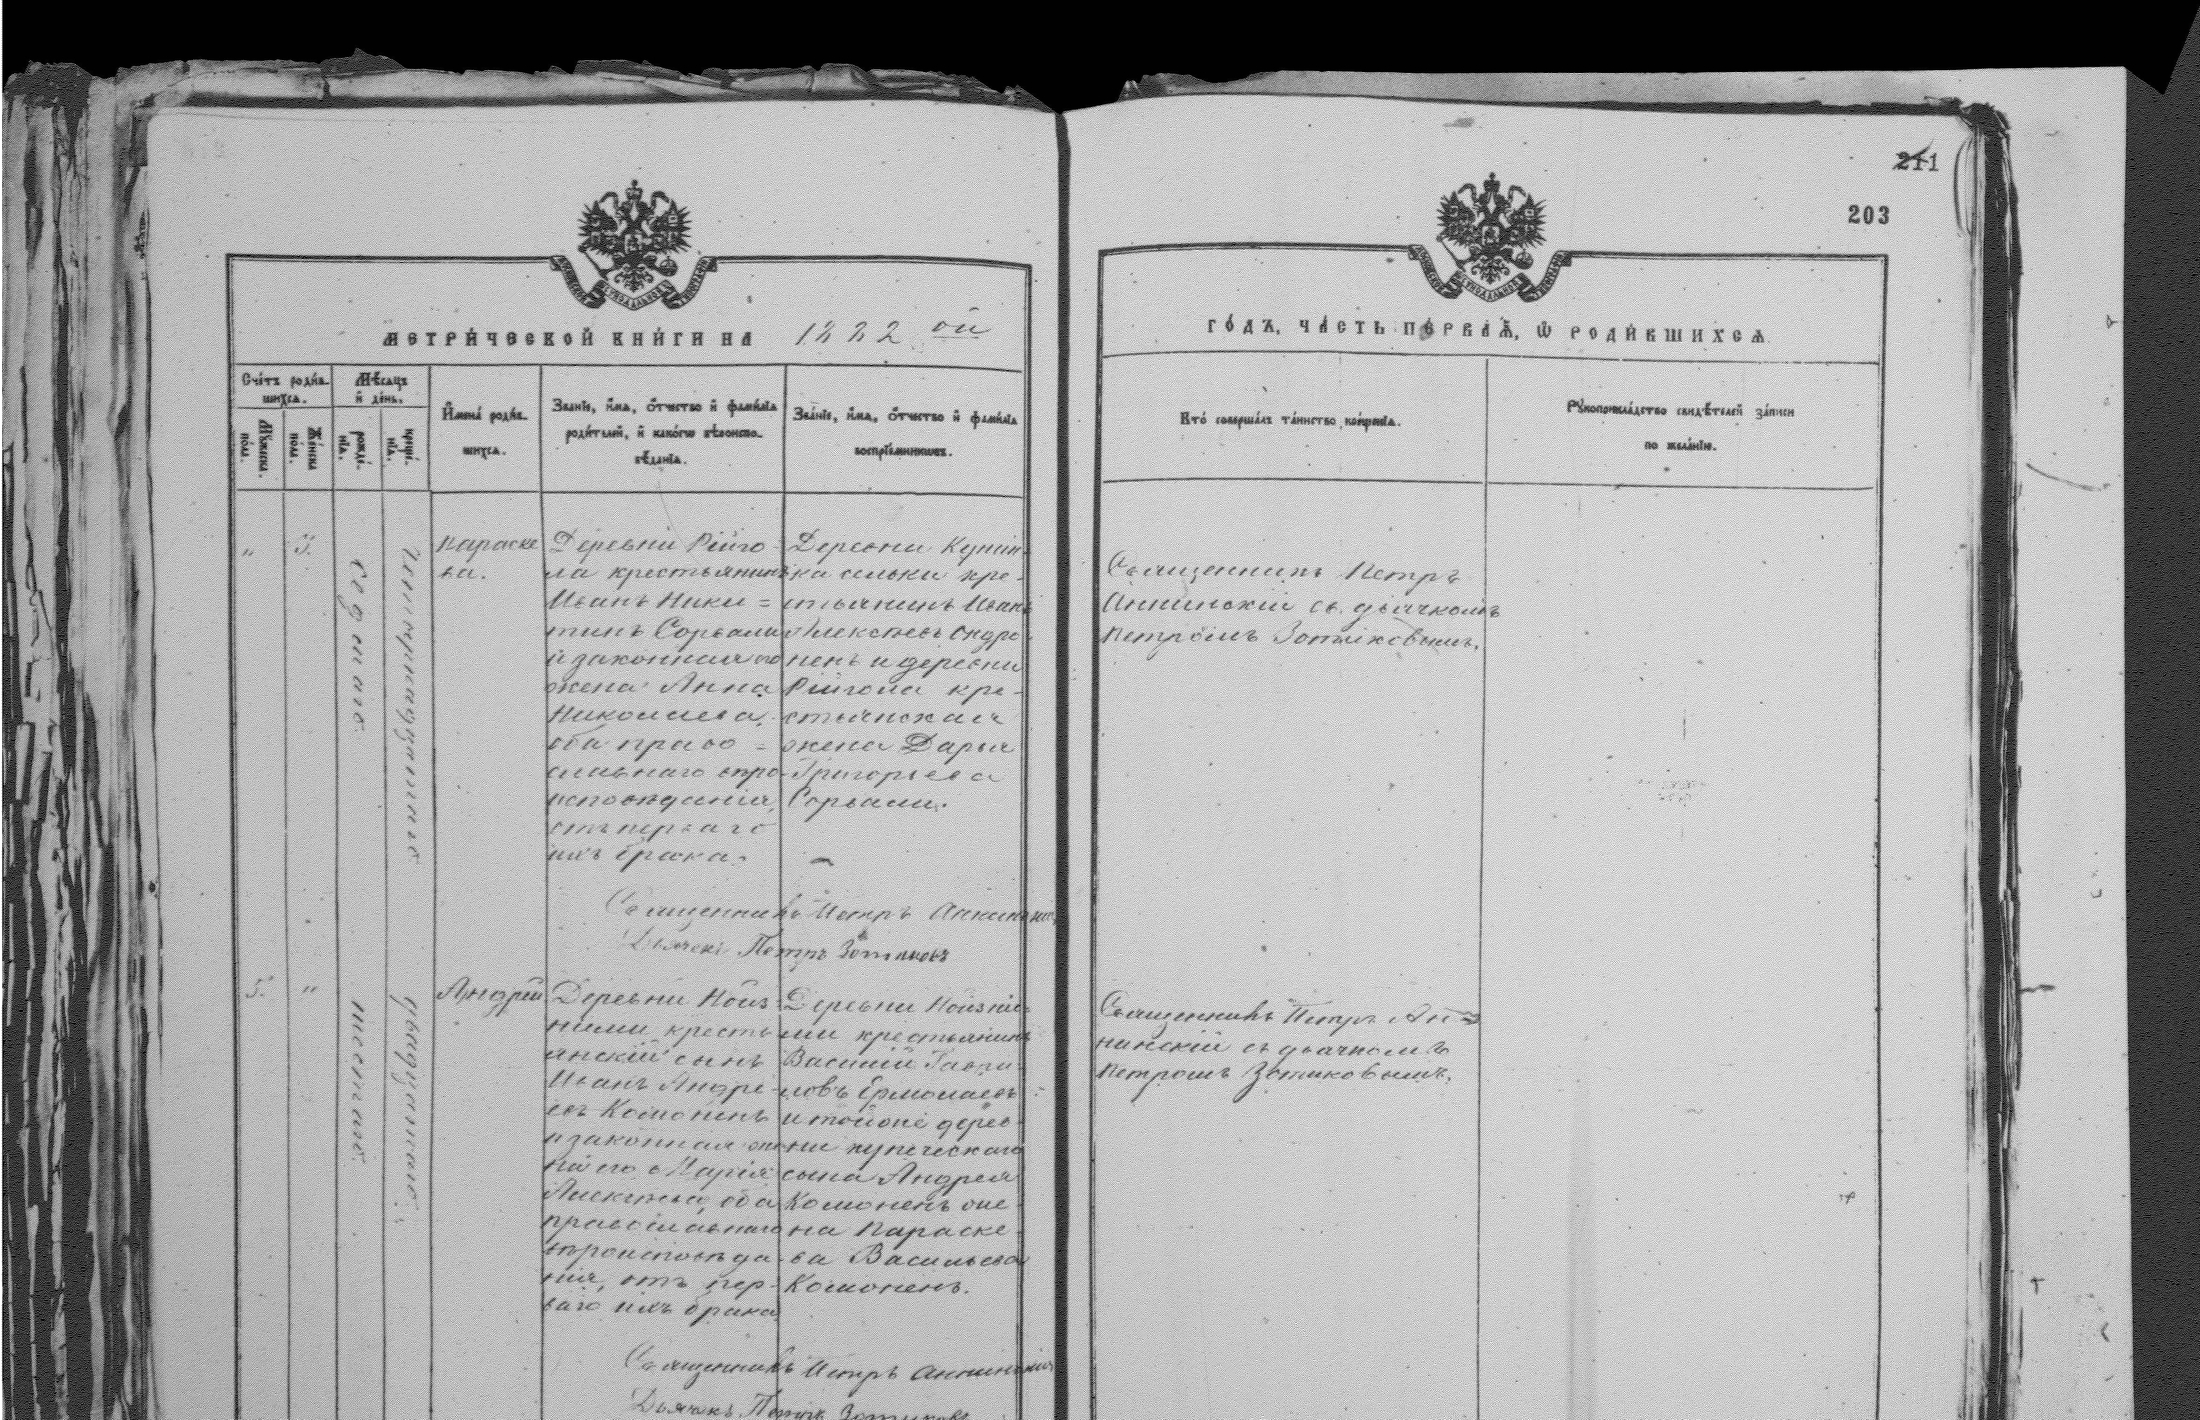 211
203
МЕТРИ́ЧЕСКОЙ КНИ́ГИ НА 1882 ой
ГО́ДЪ, ЧА́СТЬ ПЕ́РВАѦ, Ѡ҆ РОДИ́ВШИХСѦ
Сче́тъ роди́в-
шихсѧ.
Мѣ́сѧцъ
и҆ де́нь.
Мꙋ́жеска
по́ла.
Же́нска
по́ла.
рожде́-
нїѧ.
креще́-
нїѧ.
И҆мена̀ роди́в-
шихсѧ.
Зва́нїе, и҆́мѧ, ѻ҆́тчество и҆ фами́лїѧ
роди́телей, и҆ како́гѡ вѣроиспо-
вѣ́данїѧ.
Зва́нїе, и҆́мѧ, ѻ҆́тчество и҆ фами́лїѧ
воспрїе́мникѡвъ.
Кто̀ соверша́лъ та́инство креще́нїѧ.
Рꙋкоприкла́дство свидѣ́телей за́писи
по жела́нїю.
"
3.
седьмаго
четырнадцатаго
Параске
ва.
Деревни Рійго-
ла крестьянинъ
Иванъ Ники=
тинъ Сорвали
и законная его
жена Анна
Николаева,
оба право=
славнаго вѣро-
исповѣданія,
отъ перваго
ихъ брака.
Деревни
ка сельки кре-
стьянинъ Иванъ
Алексѣевъ
и деревни
Рійгола кре-
стьянская
жена Дарья
Григорьева
Сорвали.
Священникъ Петръ
Аннинскій съ дьячкомъ
Петромъ Зотиковымъ.
Священникъ Петръ Аннинскій
Дьячекъ Петръ Зотиковъ
5.
"
шестаго
двадцатаго
Андрей
Деревни
крестьъ
янскій сынъ
Иванъ Андре-
евъ Комоненъ
и законная же-
на его Марія
Алексѣева, оба
православнаго
вѣроисповѣда-
нія, отъ пер-
ваго ихъ брака
Деревни
крестьянинъ
Василій Гаври-
ловъ Ермолаевъ
и тойже дерев-
ни купеческаго
сына Андрея
Комоненъ же-
на Параске-
ва Васильева
Комоненъ.
Священникъ Петръ Ан=
нинскій съ дьячкомъ
Петромъ Зотиковымъ.
Священникъ Петръ Аннинскій
Дьячекъ Петръ Зотиковъ